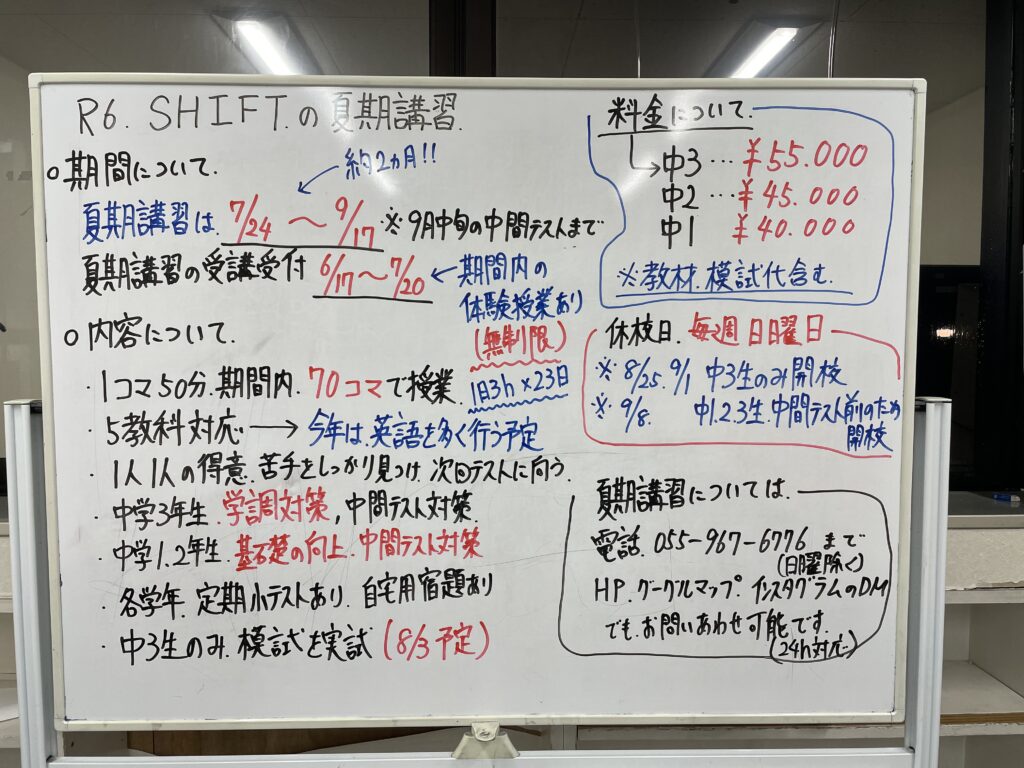 R6. SHIFT.の夏期講習.
○期間について.
約2カ月!!
夏期講習は. 7/24 〜 9/17 ※9月中旬の中間テストまで
夏期講習の受講受付 6/17〜7/20 ← 期間内の
体験授業あり
(無制限)
○内容について.
・1コマ50分. 期間内. 70コマで授業. 1日3h×23日
・5教科対応 → 今年は、英語を多く行う予定
・1人1人の得意. 苦手をしっかり見つけ. 次回テストに向う.
・中学3年生. 学調対策, 中間テスト対策.
・中学1.2年生. 基礎の向上. 中間テスト対策
・各学年. 定期小テストあり. 自宅用宿題あり
・中3生のみ. 模試を実試 (8/3予定)
料金について.
→中3 … ¥55.000
中2 … ¥45.000
中1 ¥40.000
※教材. 模試代含む.
休校日. 毎週日曜日
※8/25. 9/1 中3生のみ開校
※9/8. 中1.2.3生. 中間テスト前のため
開校
夏期講習については.
電話. 055-967-6776 まで
(日曜除く)
HP. グーグルマップ. インスタグラムのDM
でも. お問いあわせ可能です.
(24h対応)